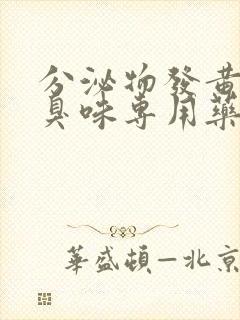 分泌物發黃
臭味專用藥
華盛頓—北京